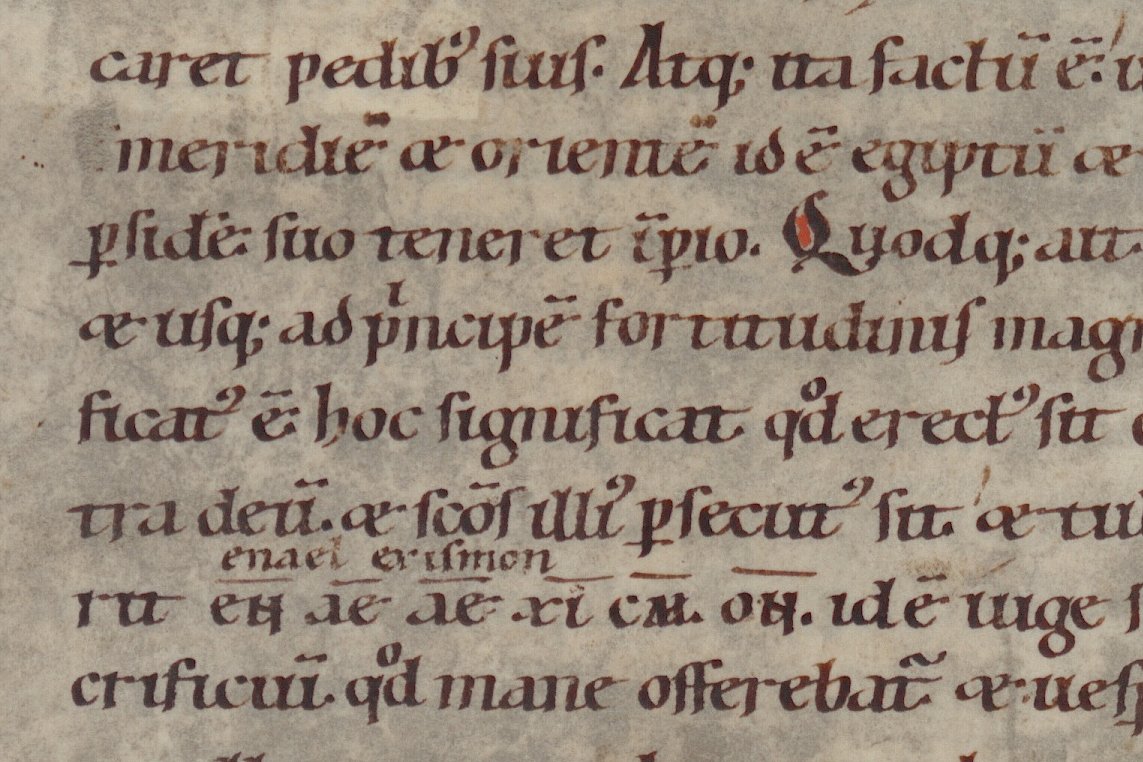 caret pedib᾽ suis. Atq; ita factū ē. u
meridiē & orientē id ē egiptū &
ꝑsidē suo teneret īꝑio. Quodq; ait
& usq; ad pⁱncipē fortitudinis magni
ficat᾽ ē. hoc significat qͦd erect᾽ sit
tra deū. & scōs illi᾽ ꝑsecut᾽ sit. & tu
enael erismon
rit eɴ ae ae xi cm. oɴ. id ē iuge s
crificiuū. qͦd mane offerebat̄ & uesp